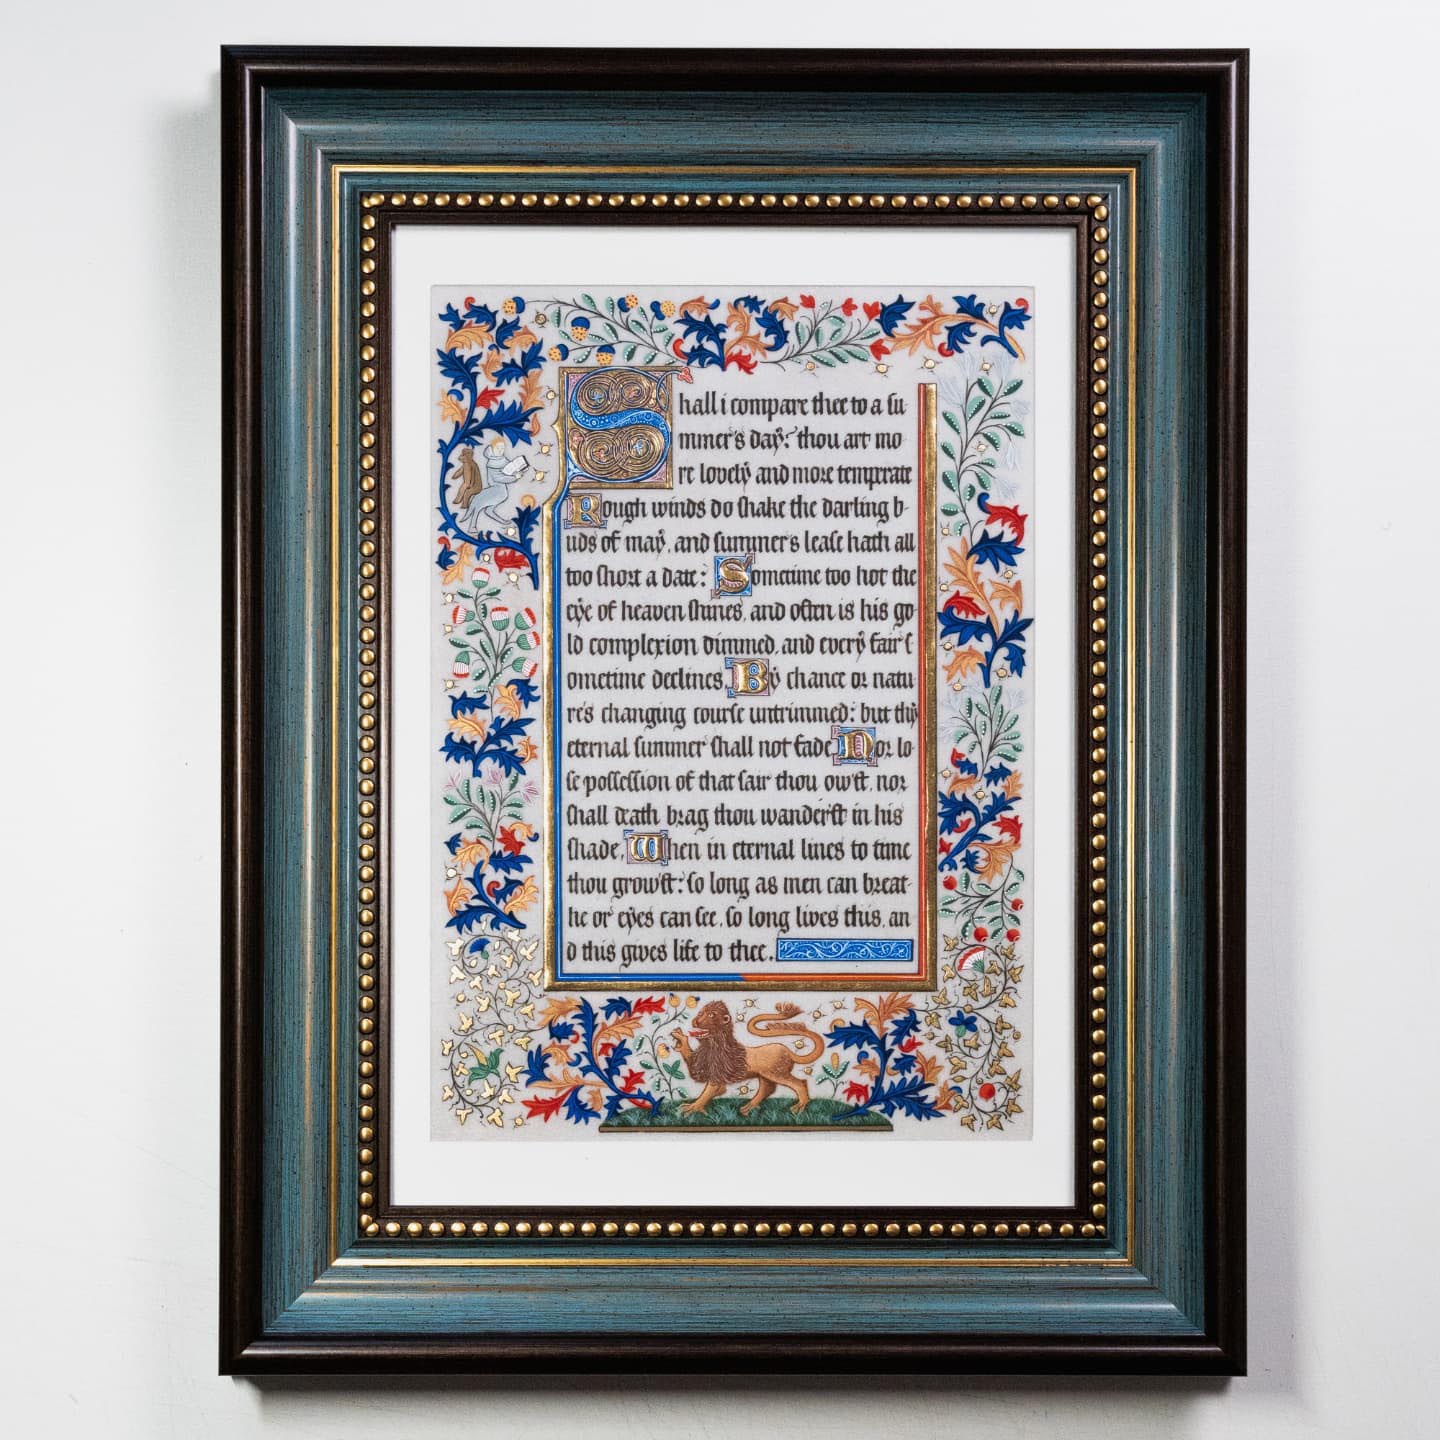 Shall i compare thee to a su-
mmer's day: thou art mo-
re lovely and more temperate
Rough winds do shake the darling b-
uds of may, and summer's lease hath all
too short a date: Sometime too hot the
eye of heaven shines, and often is his go-
ld complexion dimmed, and every fair s-
ometime declines, By chance or natu-
re's changing course untrimmed: but thy
eternal summer shall not fade, Nor lo-
se possession of that fair thou ow'st, nor
shall death brag thou wander'st in his
shade, When in eternal lines to time
thou grow'st: so long as men can breat-
he or eyes can see, so long lives this, an-
d this gives life to thee.